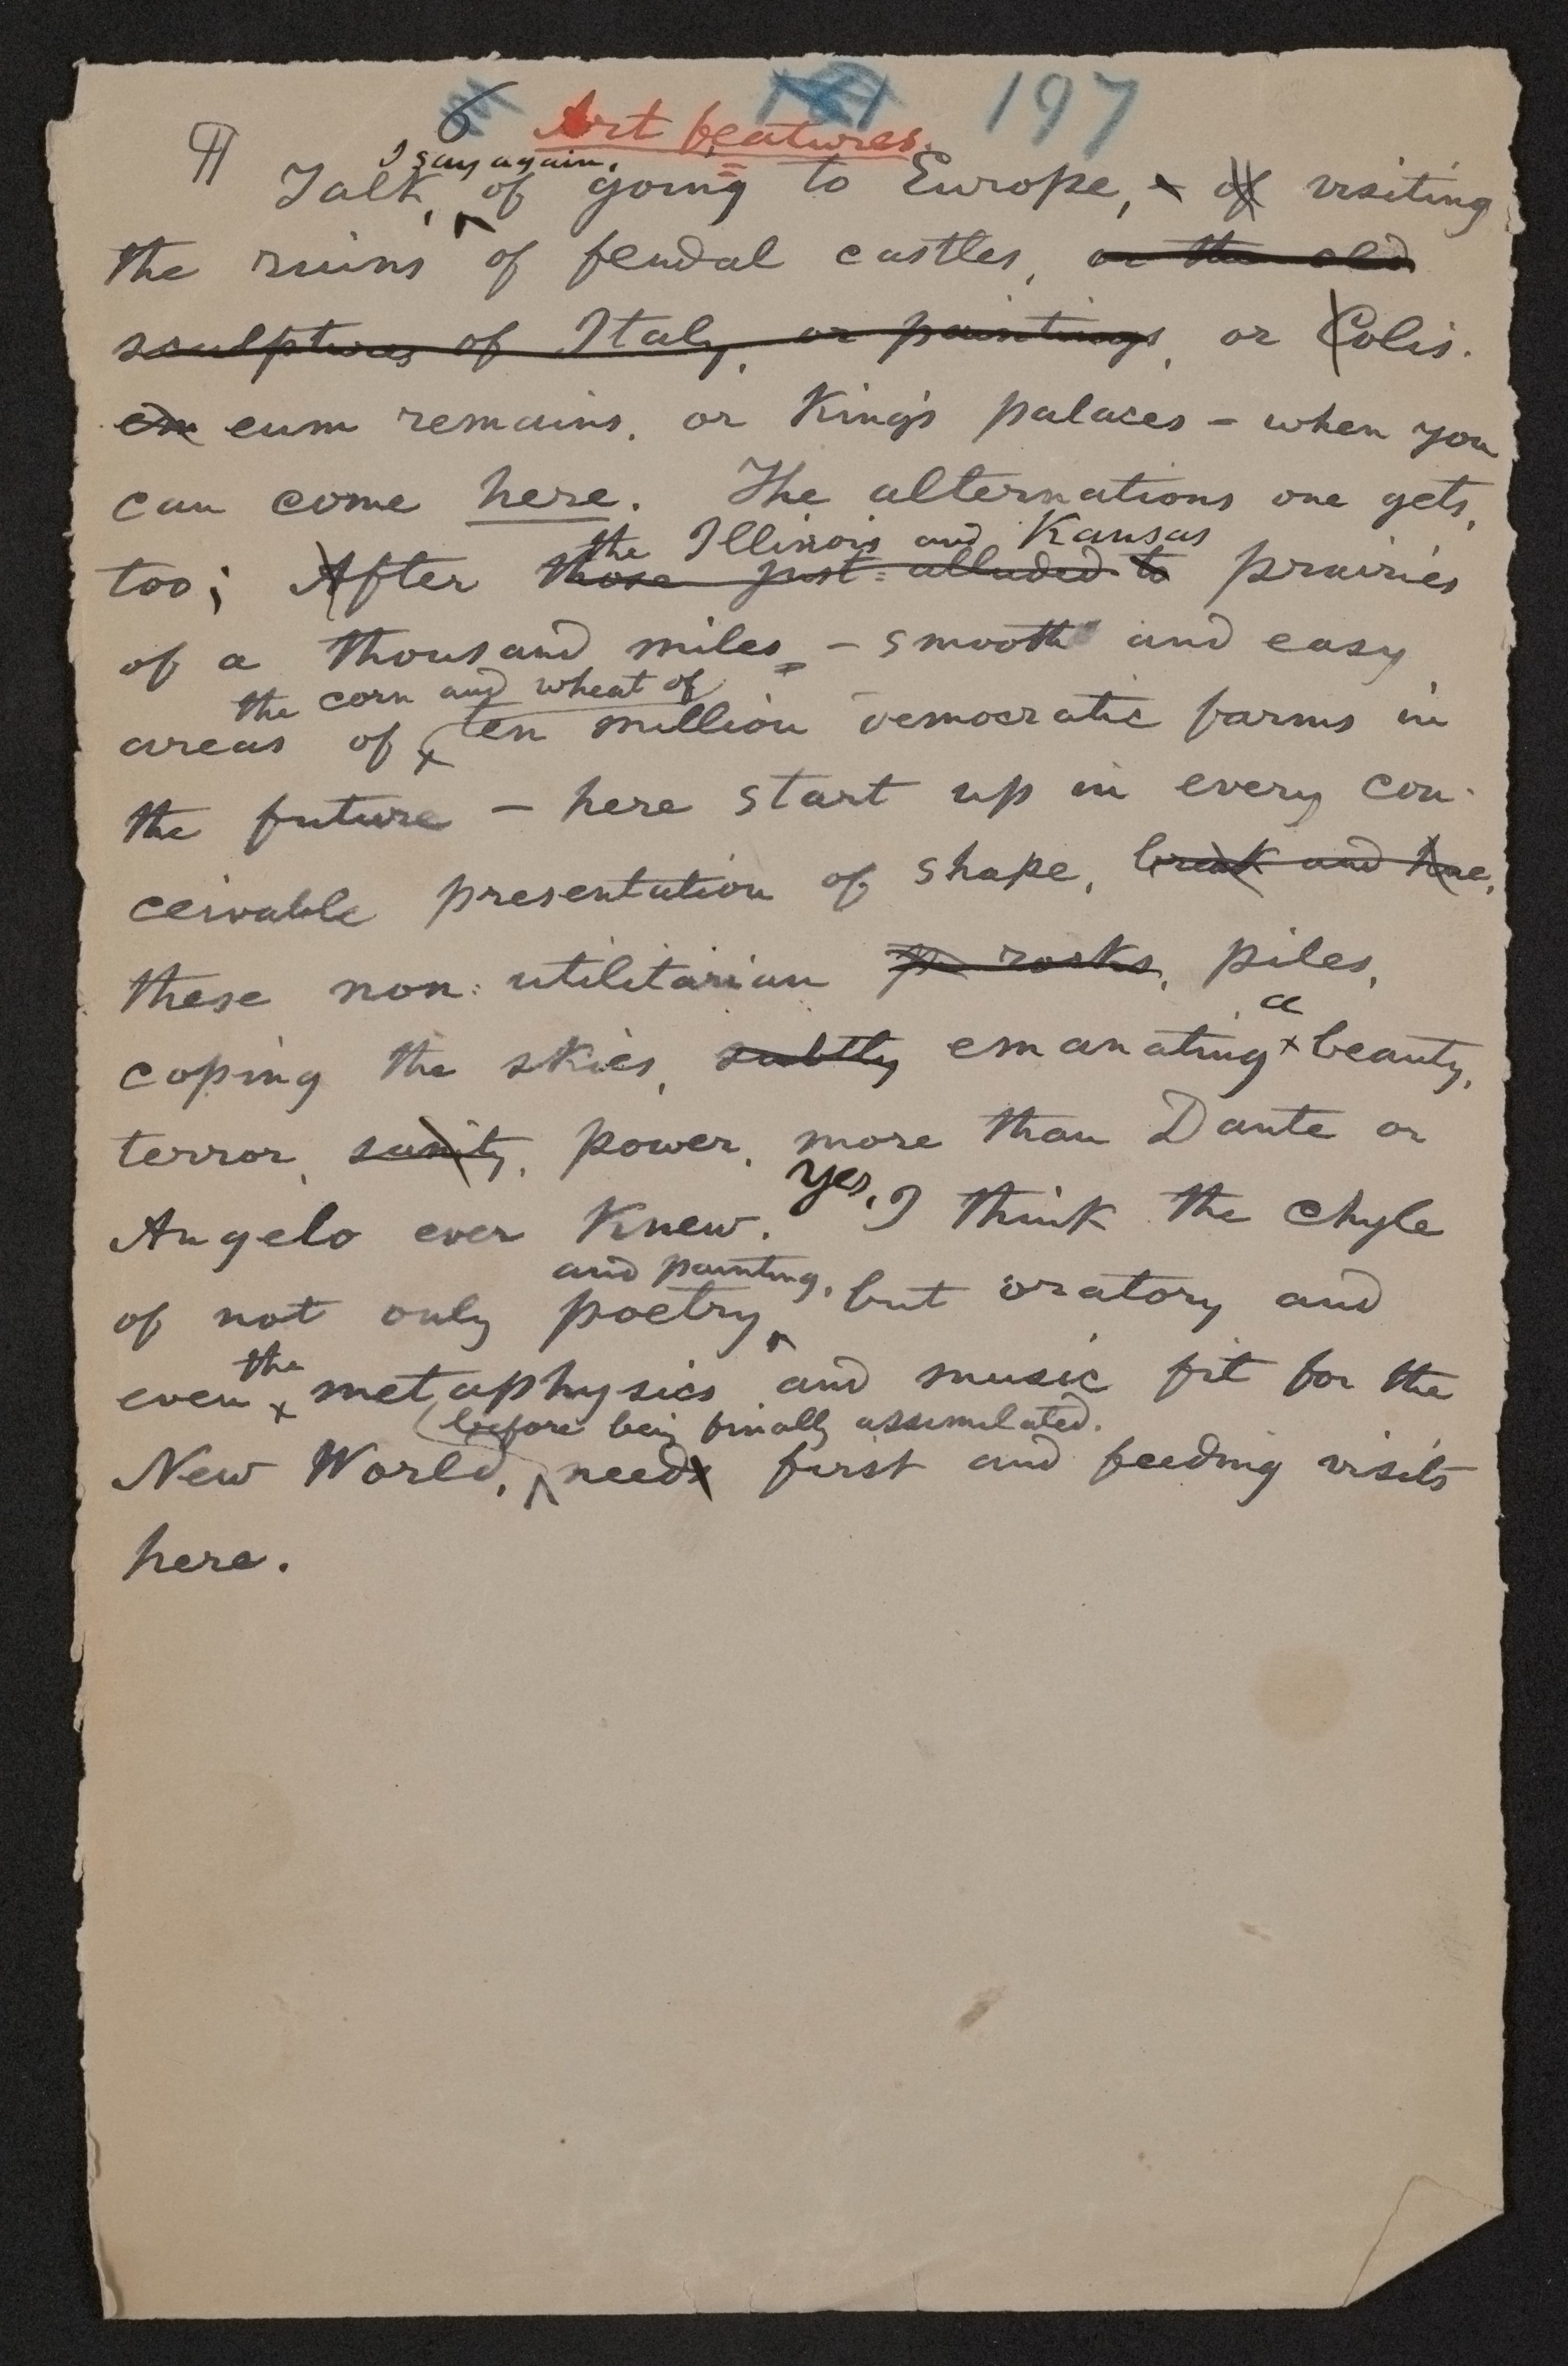 6 Art features. 197
¶ I say again,
Talk, of going to Europe, of visiting
the ruins of feudal castles, or the old
sculptures of Italy, or paintings, or Colis-
em eum remains, or King's palaces – when you
can come here. The alternations one gets,
the Illinois and Kansas
too; After those just-alluded-to prairies
of a thousand miles – smooth and easy
the corn and wheat of
areas of ten million democratic farms in
the future – here start up in every con-
ceivable presentation of shape, break and hue,
these non-utilitarian rocks, piles,
a
coping the skies, subtly emanating beauty,
terror, sanity, power, more than Dante or
Angelo ever Knew. Yes, I think the chyle
and painting,
of not only poetry, but oratory and
the
even metaphysics and music fit for the
before being finally assimilated.
New World, needs first and feeding visits
here.